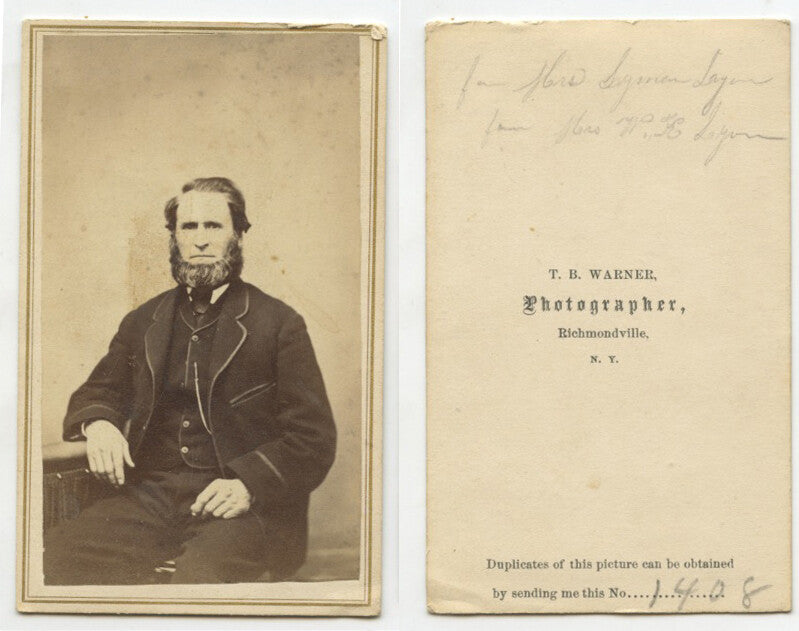 for Mrs Lyman Lyon
from Mrs W. H Lyon
T. B. WARNER,
Photographer,
Richmondville,
N. Y.
Duplicates of this picture can be obtained
by sending me this No...............1408